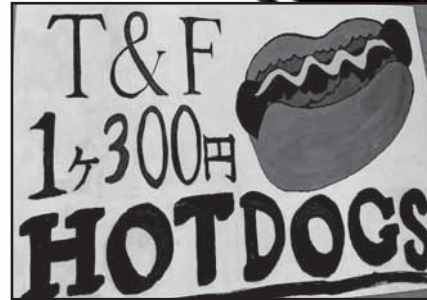 T&F
1ヶ300円
HOTDOGS